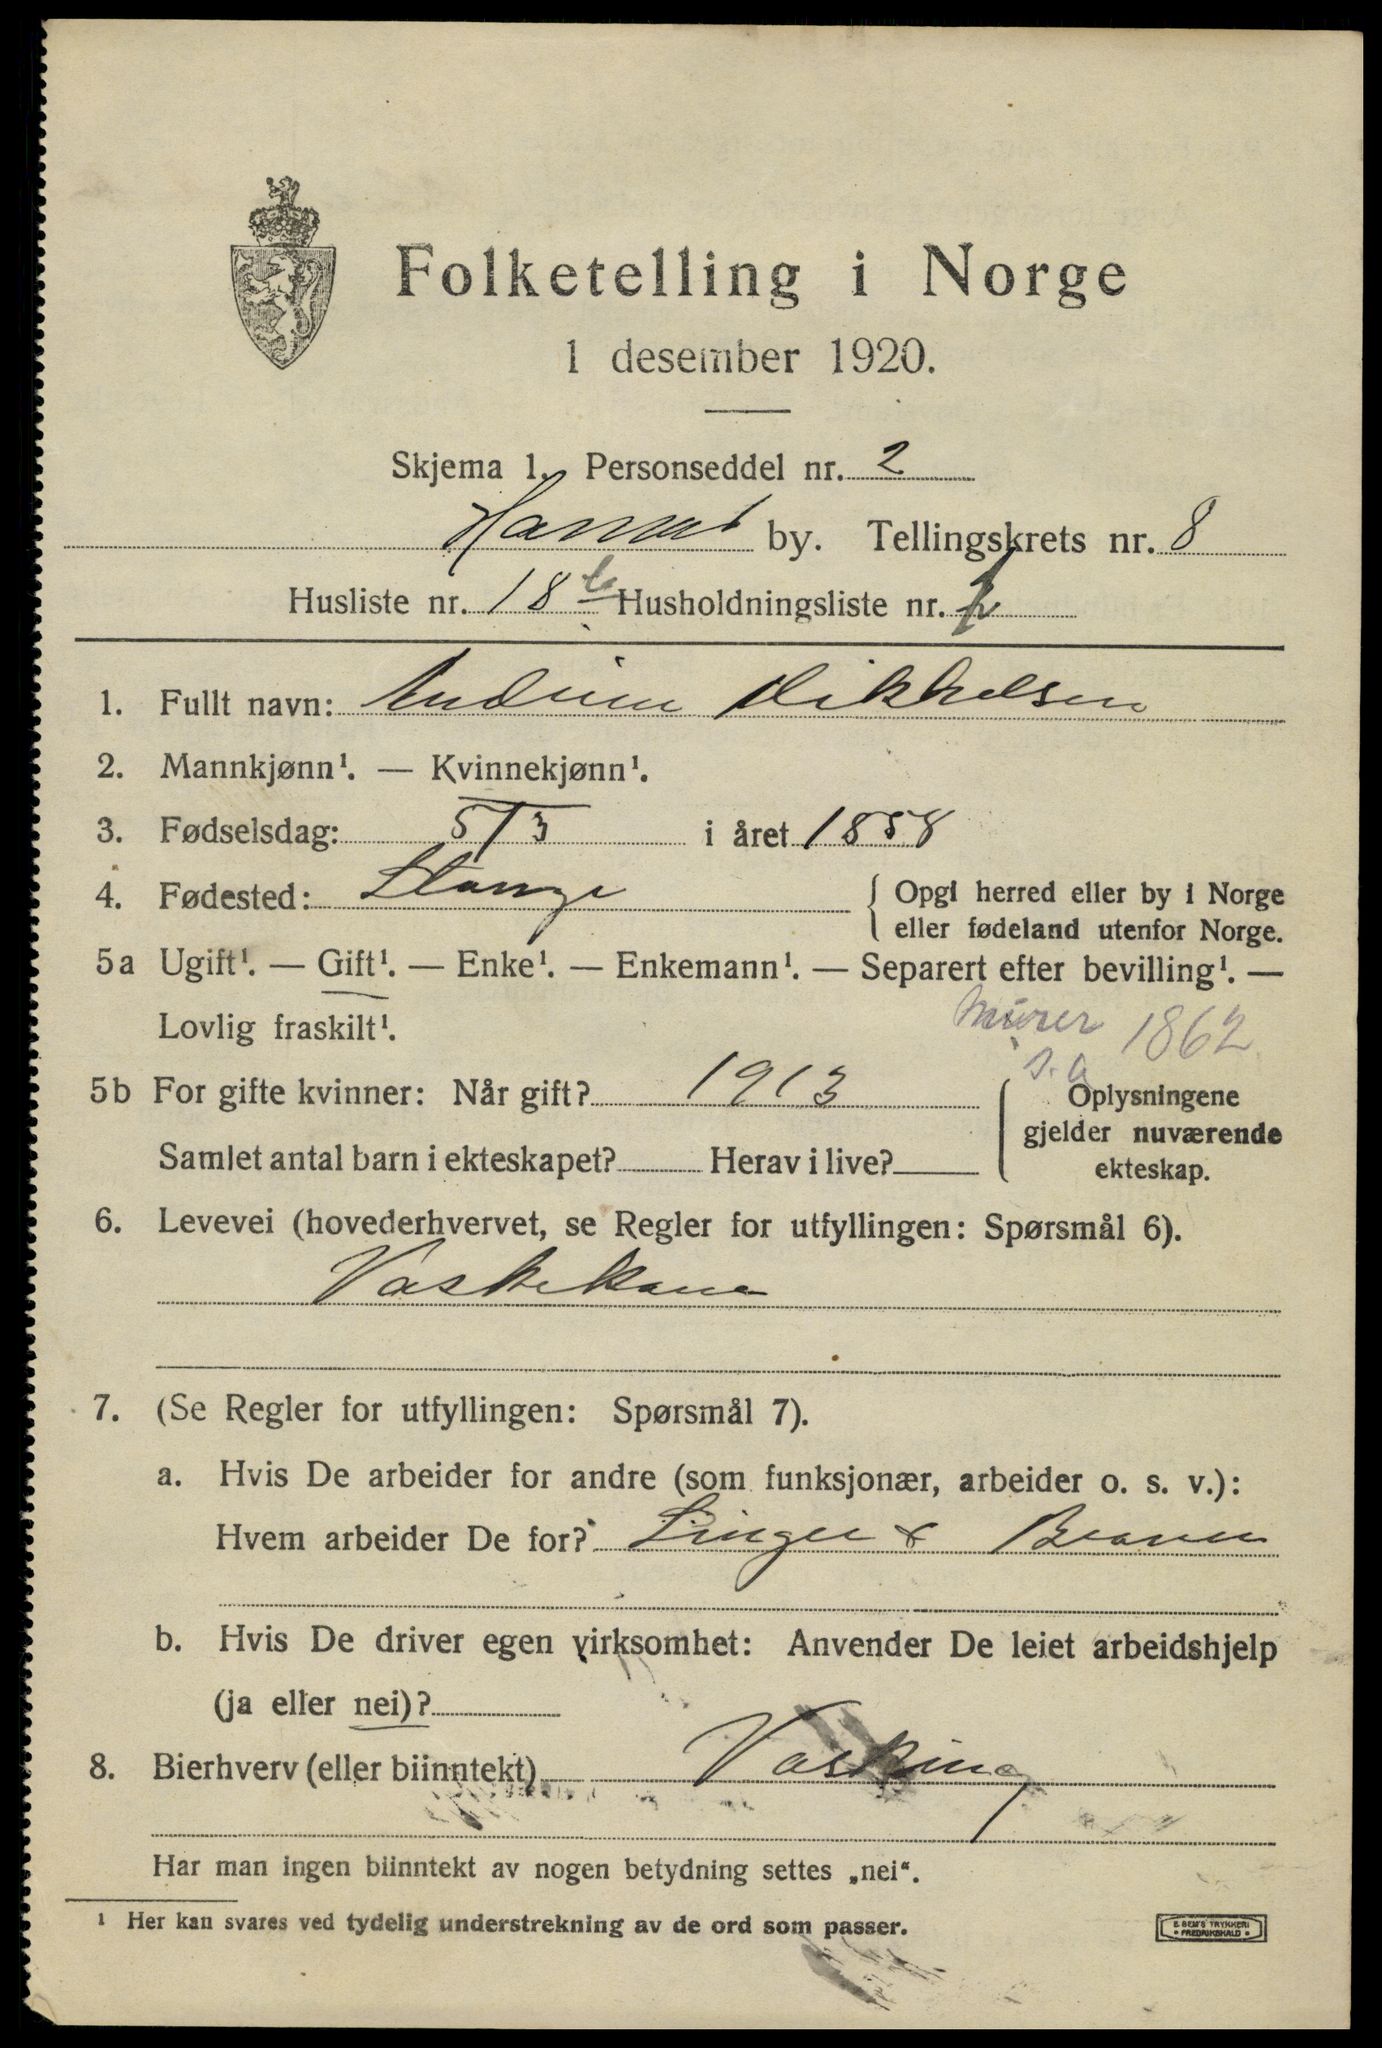 Folketelling i Norge
1 desember 1920.
Skjema 1. Personseddel nr. 2
Hamar by. Tellingskrets nr. 8
Husliste nr. 18 b Husholdningsliste nr.
1. Fullt navn: Andrine Mikkelsen
2. Mannkjønn¹. — Kvinnekjønn¹.
3. Fødselsdag: 5/3 i året 1858
4. Fødested: Stange
{ Opgi herred eller by i Norge
eller fødeland utenfor Norge.
5a Ugift¹. — Gift¹. — Enke¹. — Enkemann¹. — Separert efter bevilling¹. —
Lovlig fraskilt¹.
Murer 1862
5b For gifte kvinner: Når gift? 1913
Samlet antal barn i ekteskapet? Herav i live?
Oplysningene
gjelder nuværende
ekteskap.
6. Levevei (hovederhvervet, se Regler for utfyllingen: Spørsmål 6).
Vaskekone
7. (Se Regler for utfyllingen: Spørsmål 7).
a. Hvis De arbeider for andre (som funksjonær, arbeider o. s. v.):
Hvem arbeider De for? &
b. Hvis De driver egen virksomhet: Anvender De leiet arbeidshjelp
(ja eller nei)?
8. Bierhverv (eller biinntekt) Vasking
Har man ingen biinntekt av nogen betydning settes „nei“.
¹ Her kan svares ved tydelig understrekning av de ord som passer.
E SEM'S TRYKKERI
• FREDRIKSHALD •